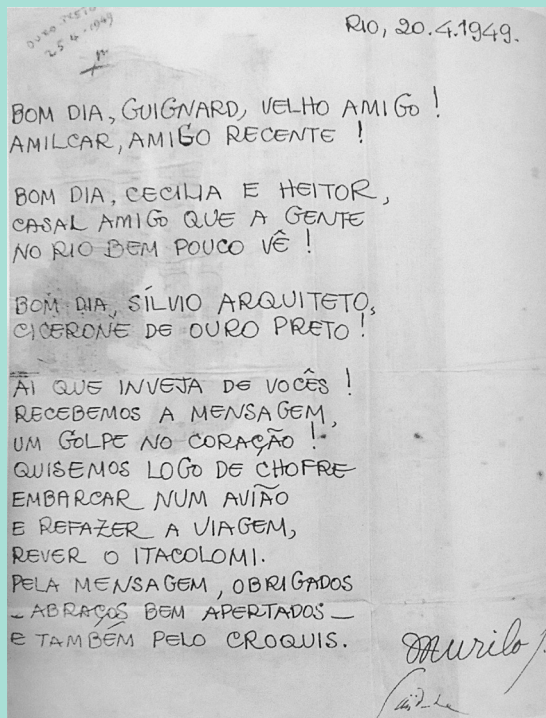 OURO PRETO
25.4.1949
RIO, 20.4.1949.
BOM DIA, GUIGNARD, VELHO AMIGO!
AMILCAR, AMIGO RECENTE!
BOM DIA, CECILIA E HEITOR,
CASAL AMIGO QUE A GENTE
NO RIO BEM POUCO VÊ!
BOM DIA, SÍLVIO ARQUITETO,
CICERONE DE OURO PRETO!
AI QUE INVEJA DE VOCÊS!
RECEBEMOS A MENSAGEM,
UM GOLPE NO CORAÇÃO!
QUISEMOS LOGO DE CHOFRE
EMBARCAR NUM AVIÃO
E REFAZER A VIAGEM,
REVER O ITACOLOMI.
PELA MENSAGEM, OBRIGADOS
_ ABRAÇOS BEM APERTADOS _
E TAMBÉM PELO CROQUIS.
Murilo